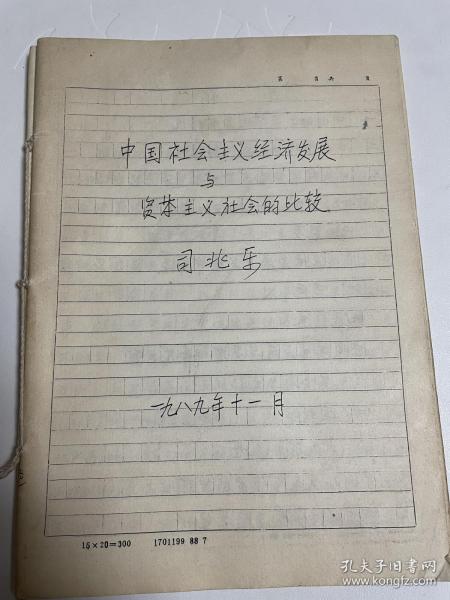 第 页 共 页
中国社会主义经济发展
与
资本主义社会的比较
司兆乐
一九八九年十一月
15×20=300 1701199 88 7
孔夫子旧书网
www.kongfz.com